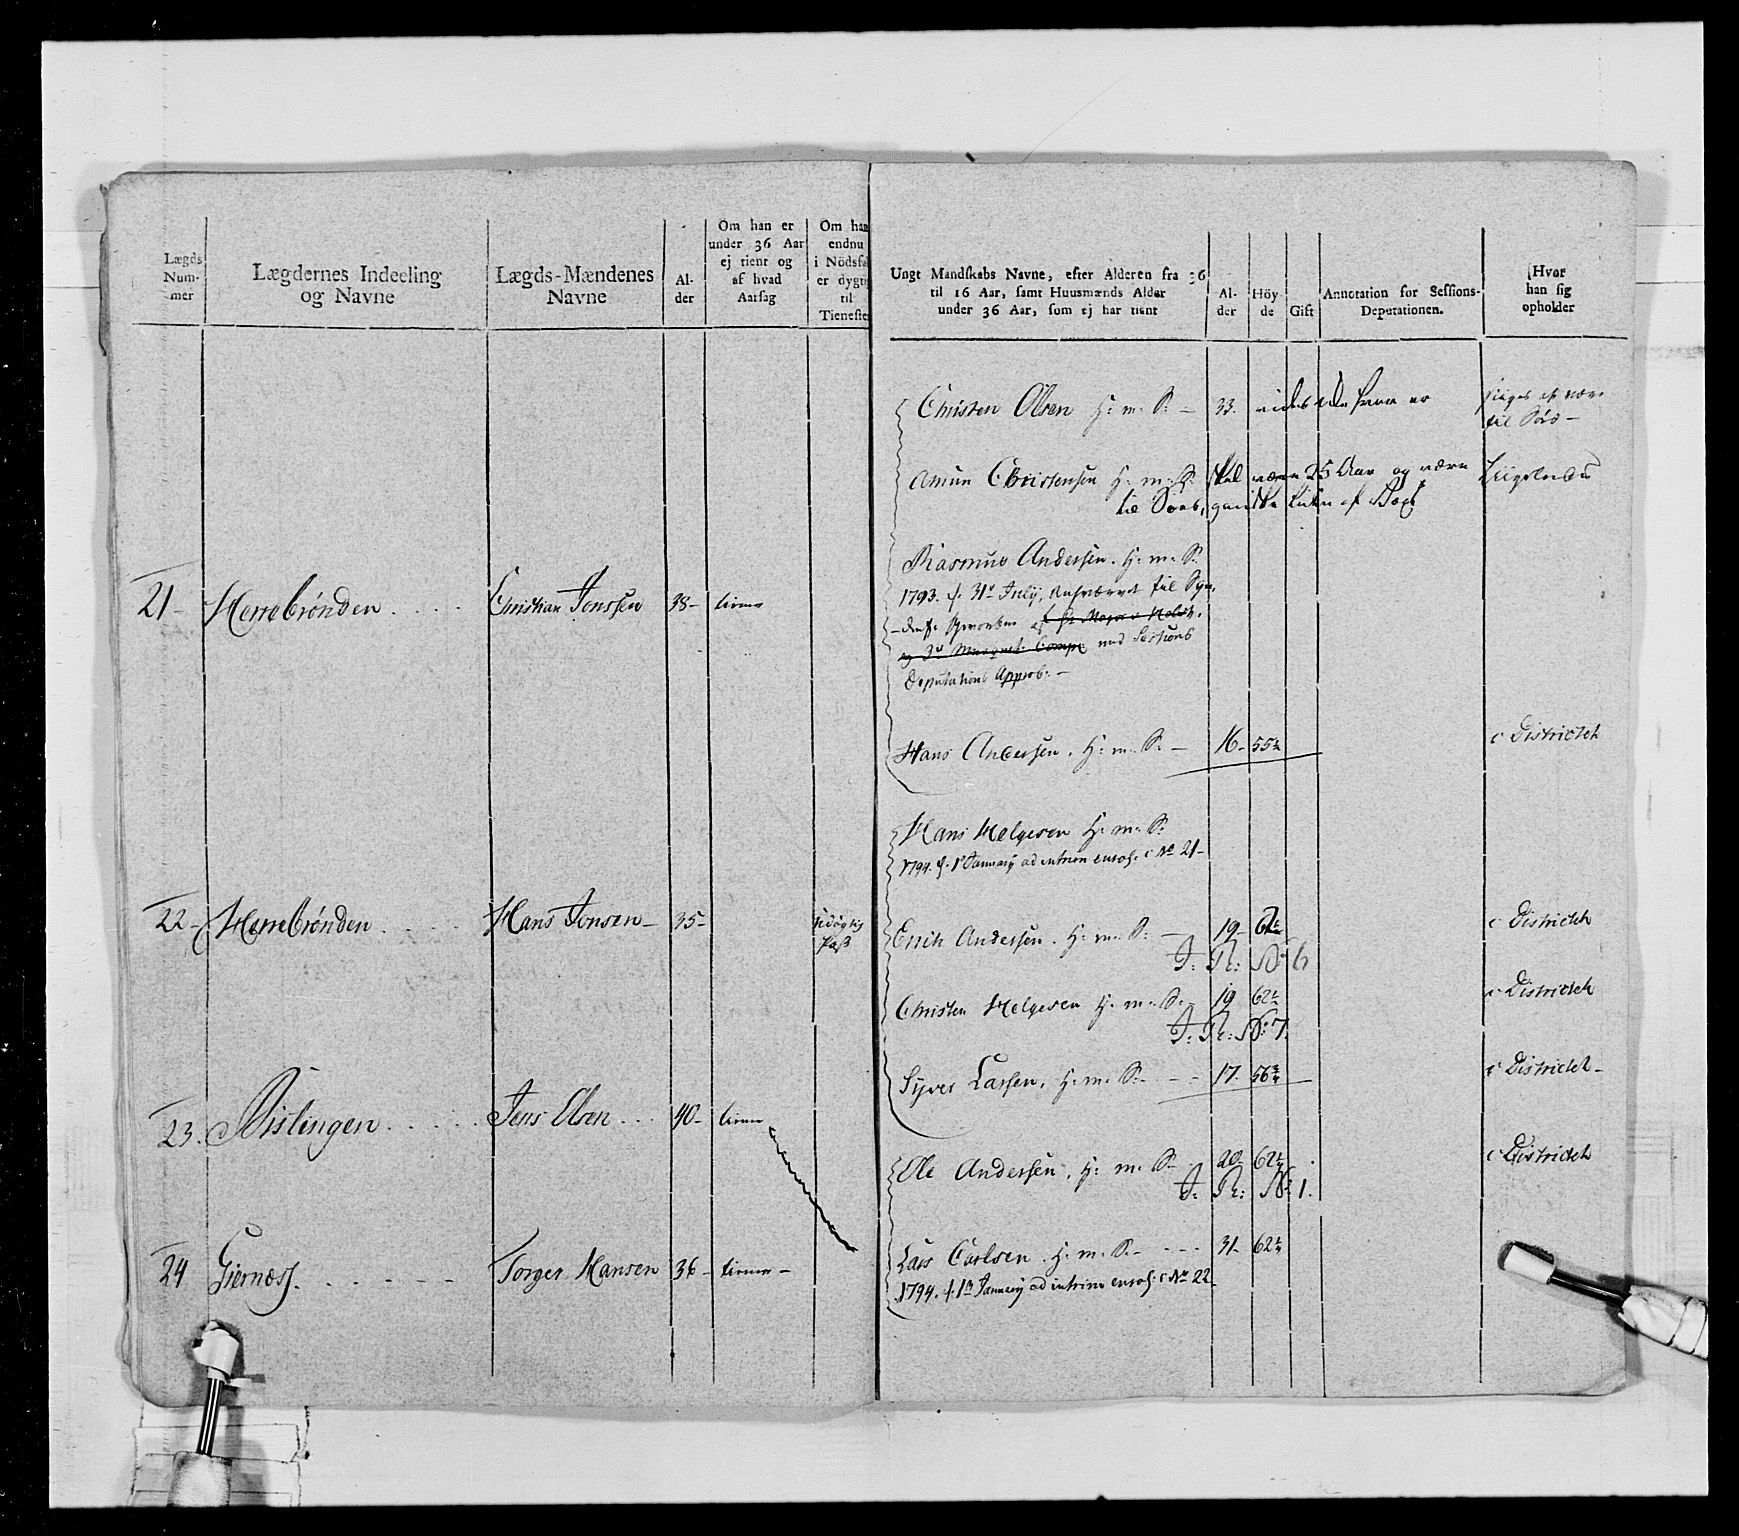 Lægds
Num-
mer
Lægdernes Indeeling
og Navne
Lægds-Mændenes
Navne
Al-
der
Om han er
under 36 Aar
ej tient og
af hvad
Aarsag
Om han
endnu
i Nödsfa
er dygti
til
Tieneste
21- Herrebrönden . . . . Christian Jonssen 38-
22- Herrebrönden . . . . Hans Jonsen- 35- udygtig
Paß
23. Rislingen . . . . . Jens Olsen . . . 40-
24 Giernæss. . . . . - - - Torger Hansen 36-
Ungt Mandskabs Navne, efter Alderen fra 36
til 16 Aar, samt Huusmænds Alder
under 36 Aar, som ej har tient
Al-
der
Höy-
de
Gift
Annotation for Sessions-
Deputationen.
Hvor
han sig
opholder
Christen Olsen H: m: S: - 33. vides ikke hvor er siges at være
til Søes -
Amun Christensen H: m: S: skal være 25 Aar og være
til Søes, ganske liden af Væxt
Rasmus Andersen. H: m: S:
1793. d. 31te July, til Syn-
med Sessions
Deputations Approb: -
Hans Andersen. H: m: S: - 16- 55½ i Districtet
Hans Helgesen H: m: S:
1794. d. 1te January ad intrim enrol: i No 21-
Erich Andersen. H: m: S: - 19- i Districtet
J: R: No 6
Christen Helgesen H: m: S: - 19 62½ i Districtet
J: R: No 7.
Syver Larsen. H: m: S: - - 17. 56¾ i Districtet-
Ole Andersen. H: m: S: 20- 62½ i Districtet
J: R: No 1.
Lars Carlsen. H: m: S: - - - - 31- 62½
1794. d. 1te January ad intrim enrol: i No 22-